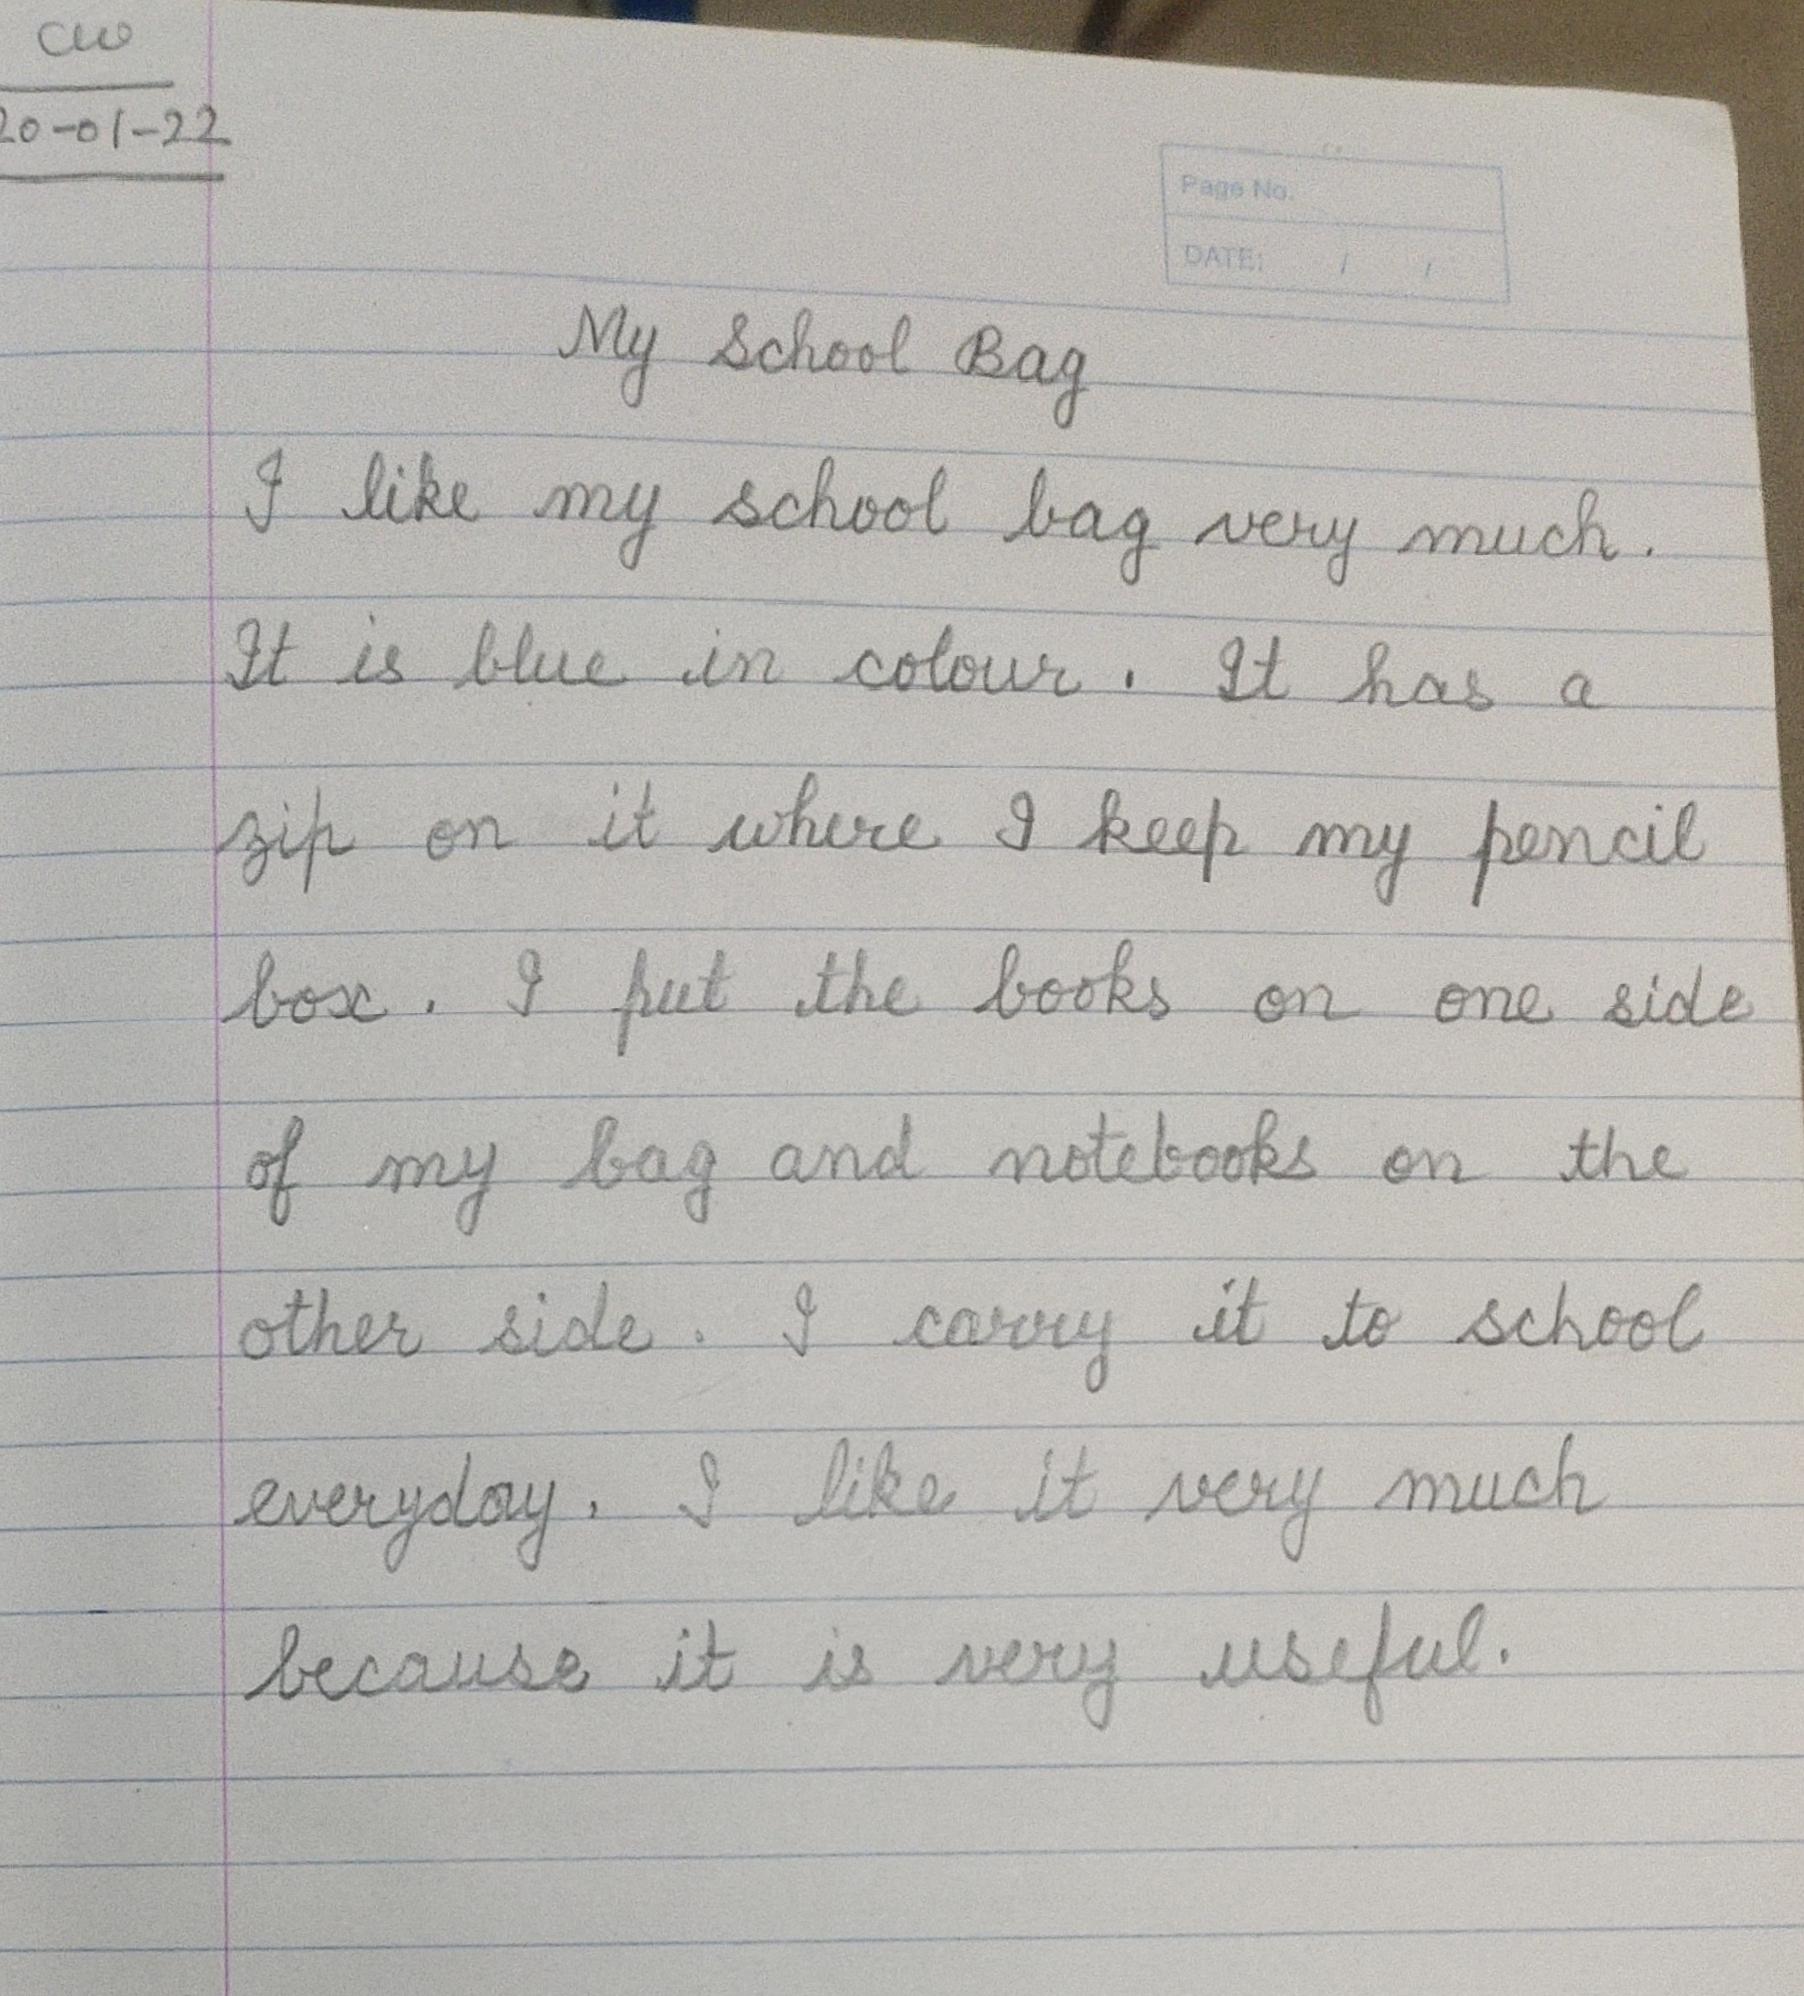 CW
20-01-22
Page No.
DATE: / /
My School Bag
I like my school bag very much.
It is blue in colour. It has a
zip on it where I keep my pencil
box. I put the books on one side
of my bag and notebooks on the
other side. I carry it to school
everyday. I like it very much
because it is very useful.